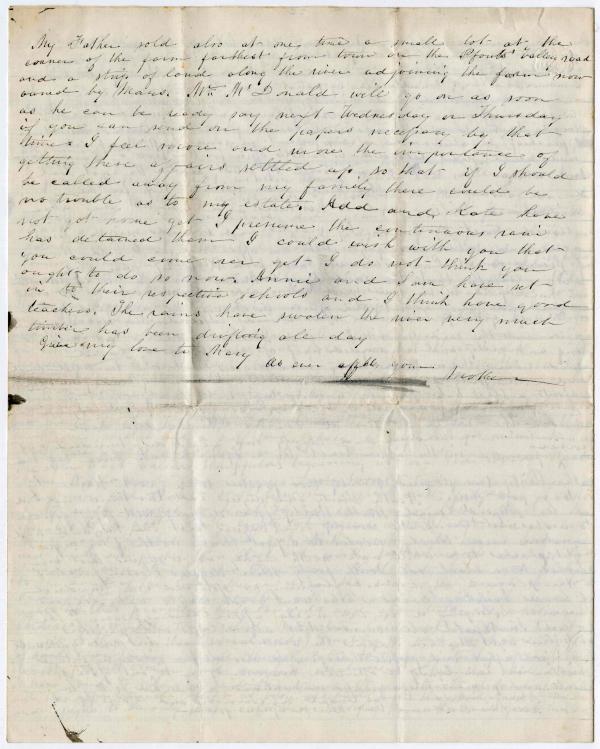 My Father sold also at one time a small lot at the
corner of the farm farthest from town on the Pfouts' Valley road
and a strip of land along the river adjoining the farm now
owned by Mc Donald will go on as soon
as he can be ready say next Wednesday or Thursday
if you can send on the papers necessary by that
time. I feel more and more the importance of
getting these affairs settled up. so that if I should
be called away from my family there could be
no trouble as to my estate. Add and Kate have
not got yet I presume the continuous rain
has detained them I could wish with you that
you could come over yet I do not think you
ought to do so now. Annie and Sam have set
in to their respective schools and I think have good
teachers. The rains have swolen the river very much
has been drifting all day
Give my love to Mary
As ever your Mother